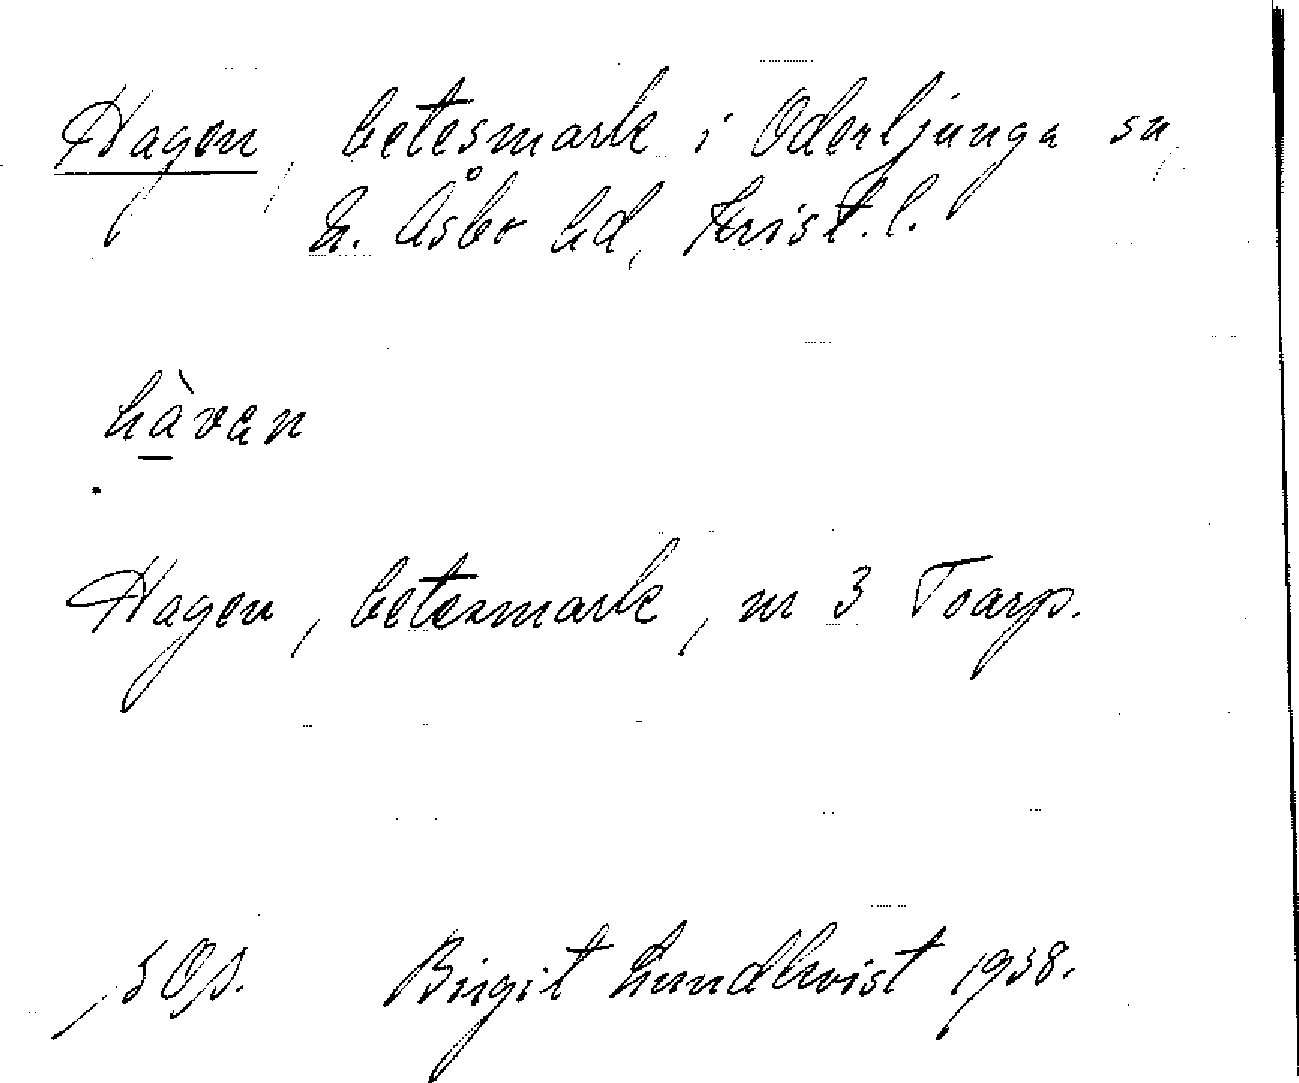 Hagen, betesmark i Oderljunga sn,
N. Åsbo hd, Krist. l.
hàvan
Hagen, betesmark, nr 3 Toarp.
Birgit Lundkvist 1938.